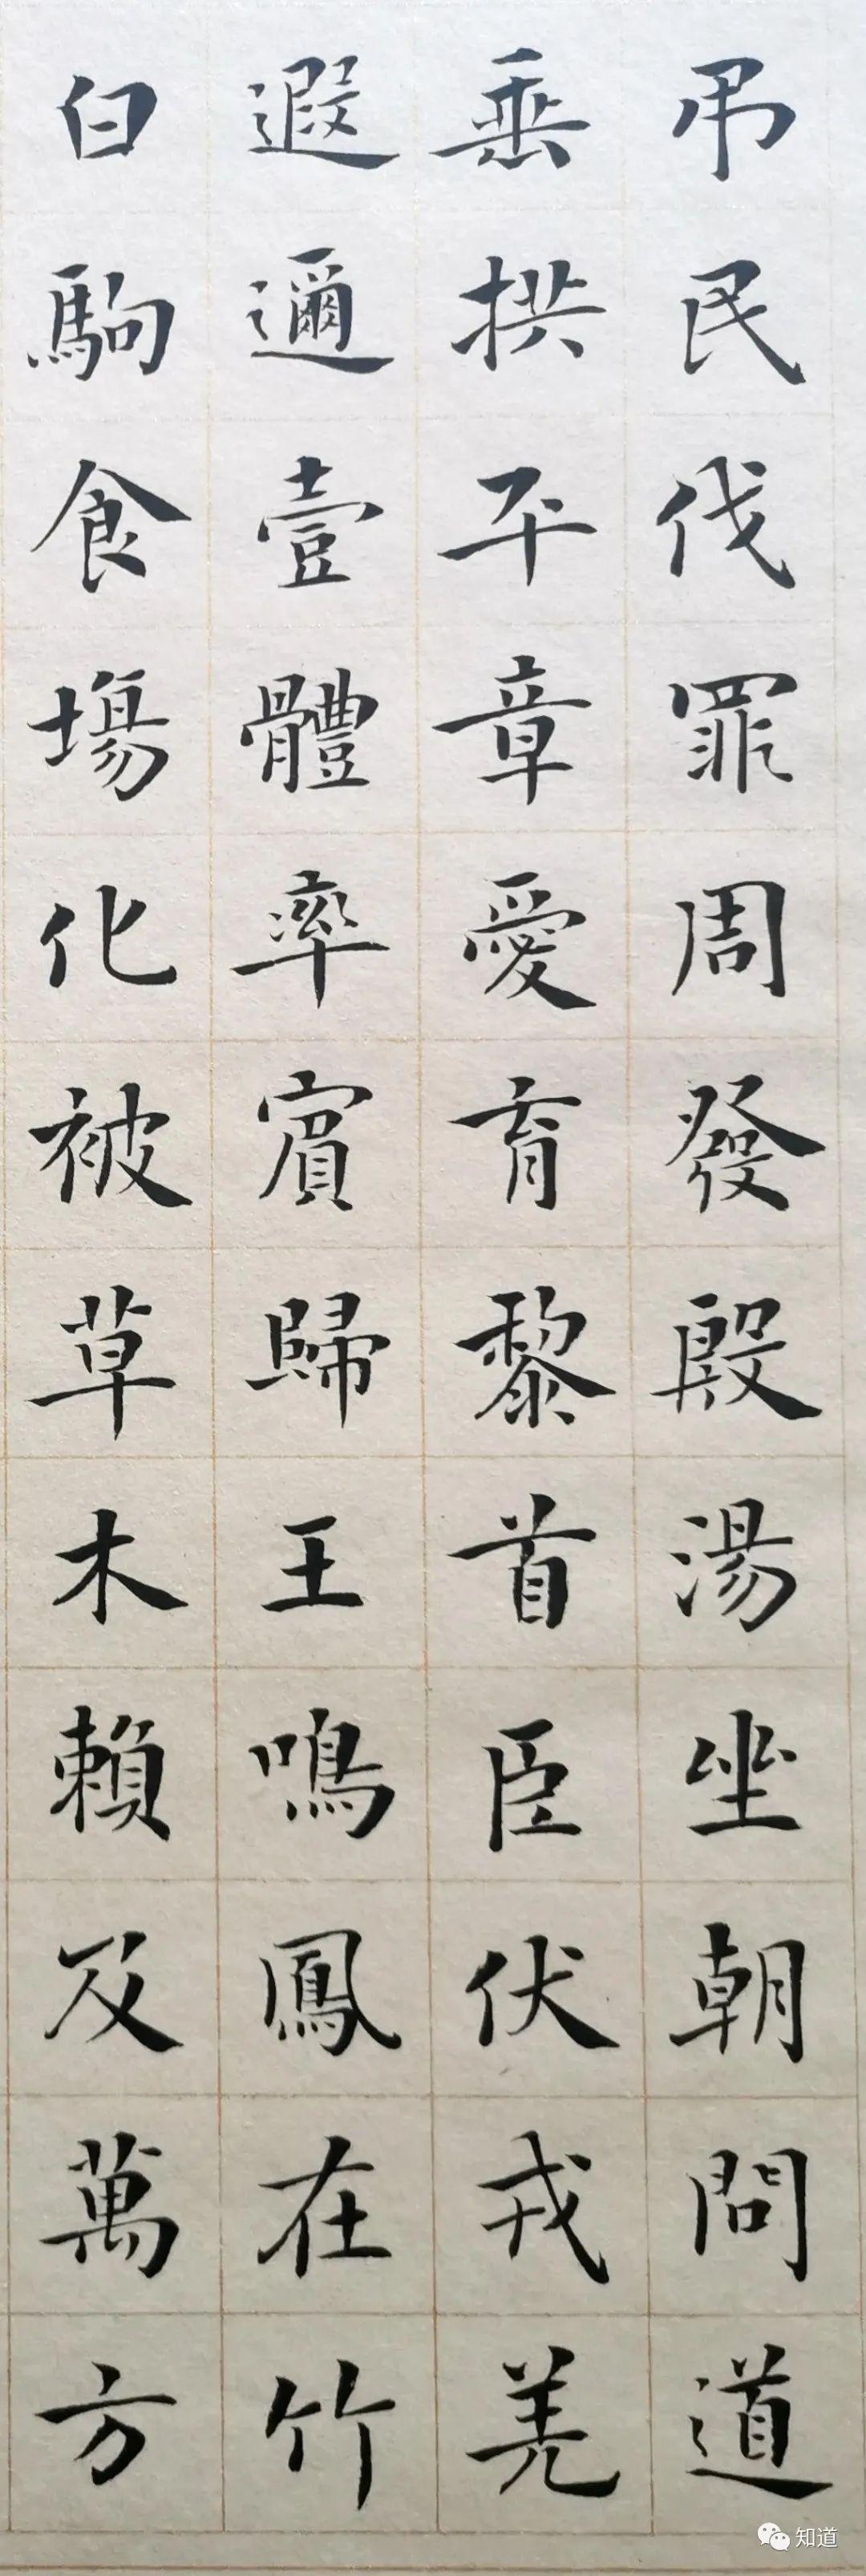 弔民伐罪周發殷湯坐朝問道
垂拱平章愛育黎首臣伏戎羌
遐邇壹體率賓歸王鳴鳳在竹
白駒食場化被草木賴及萬方
知道